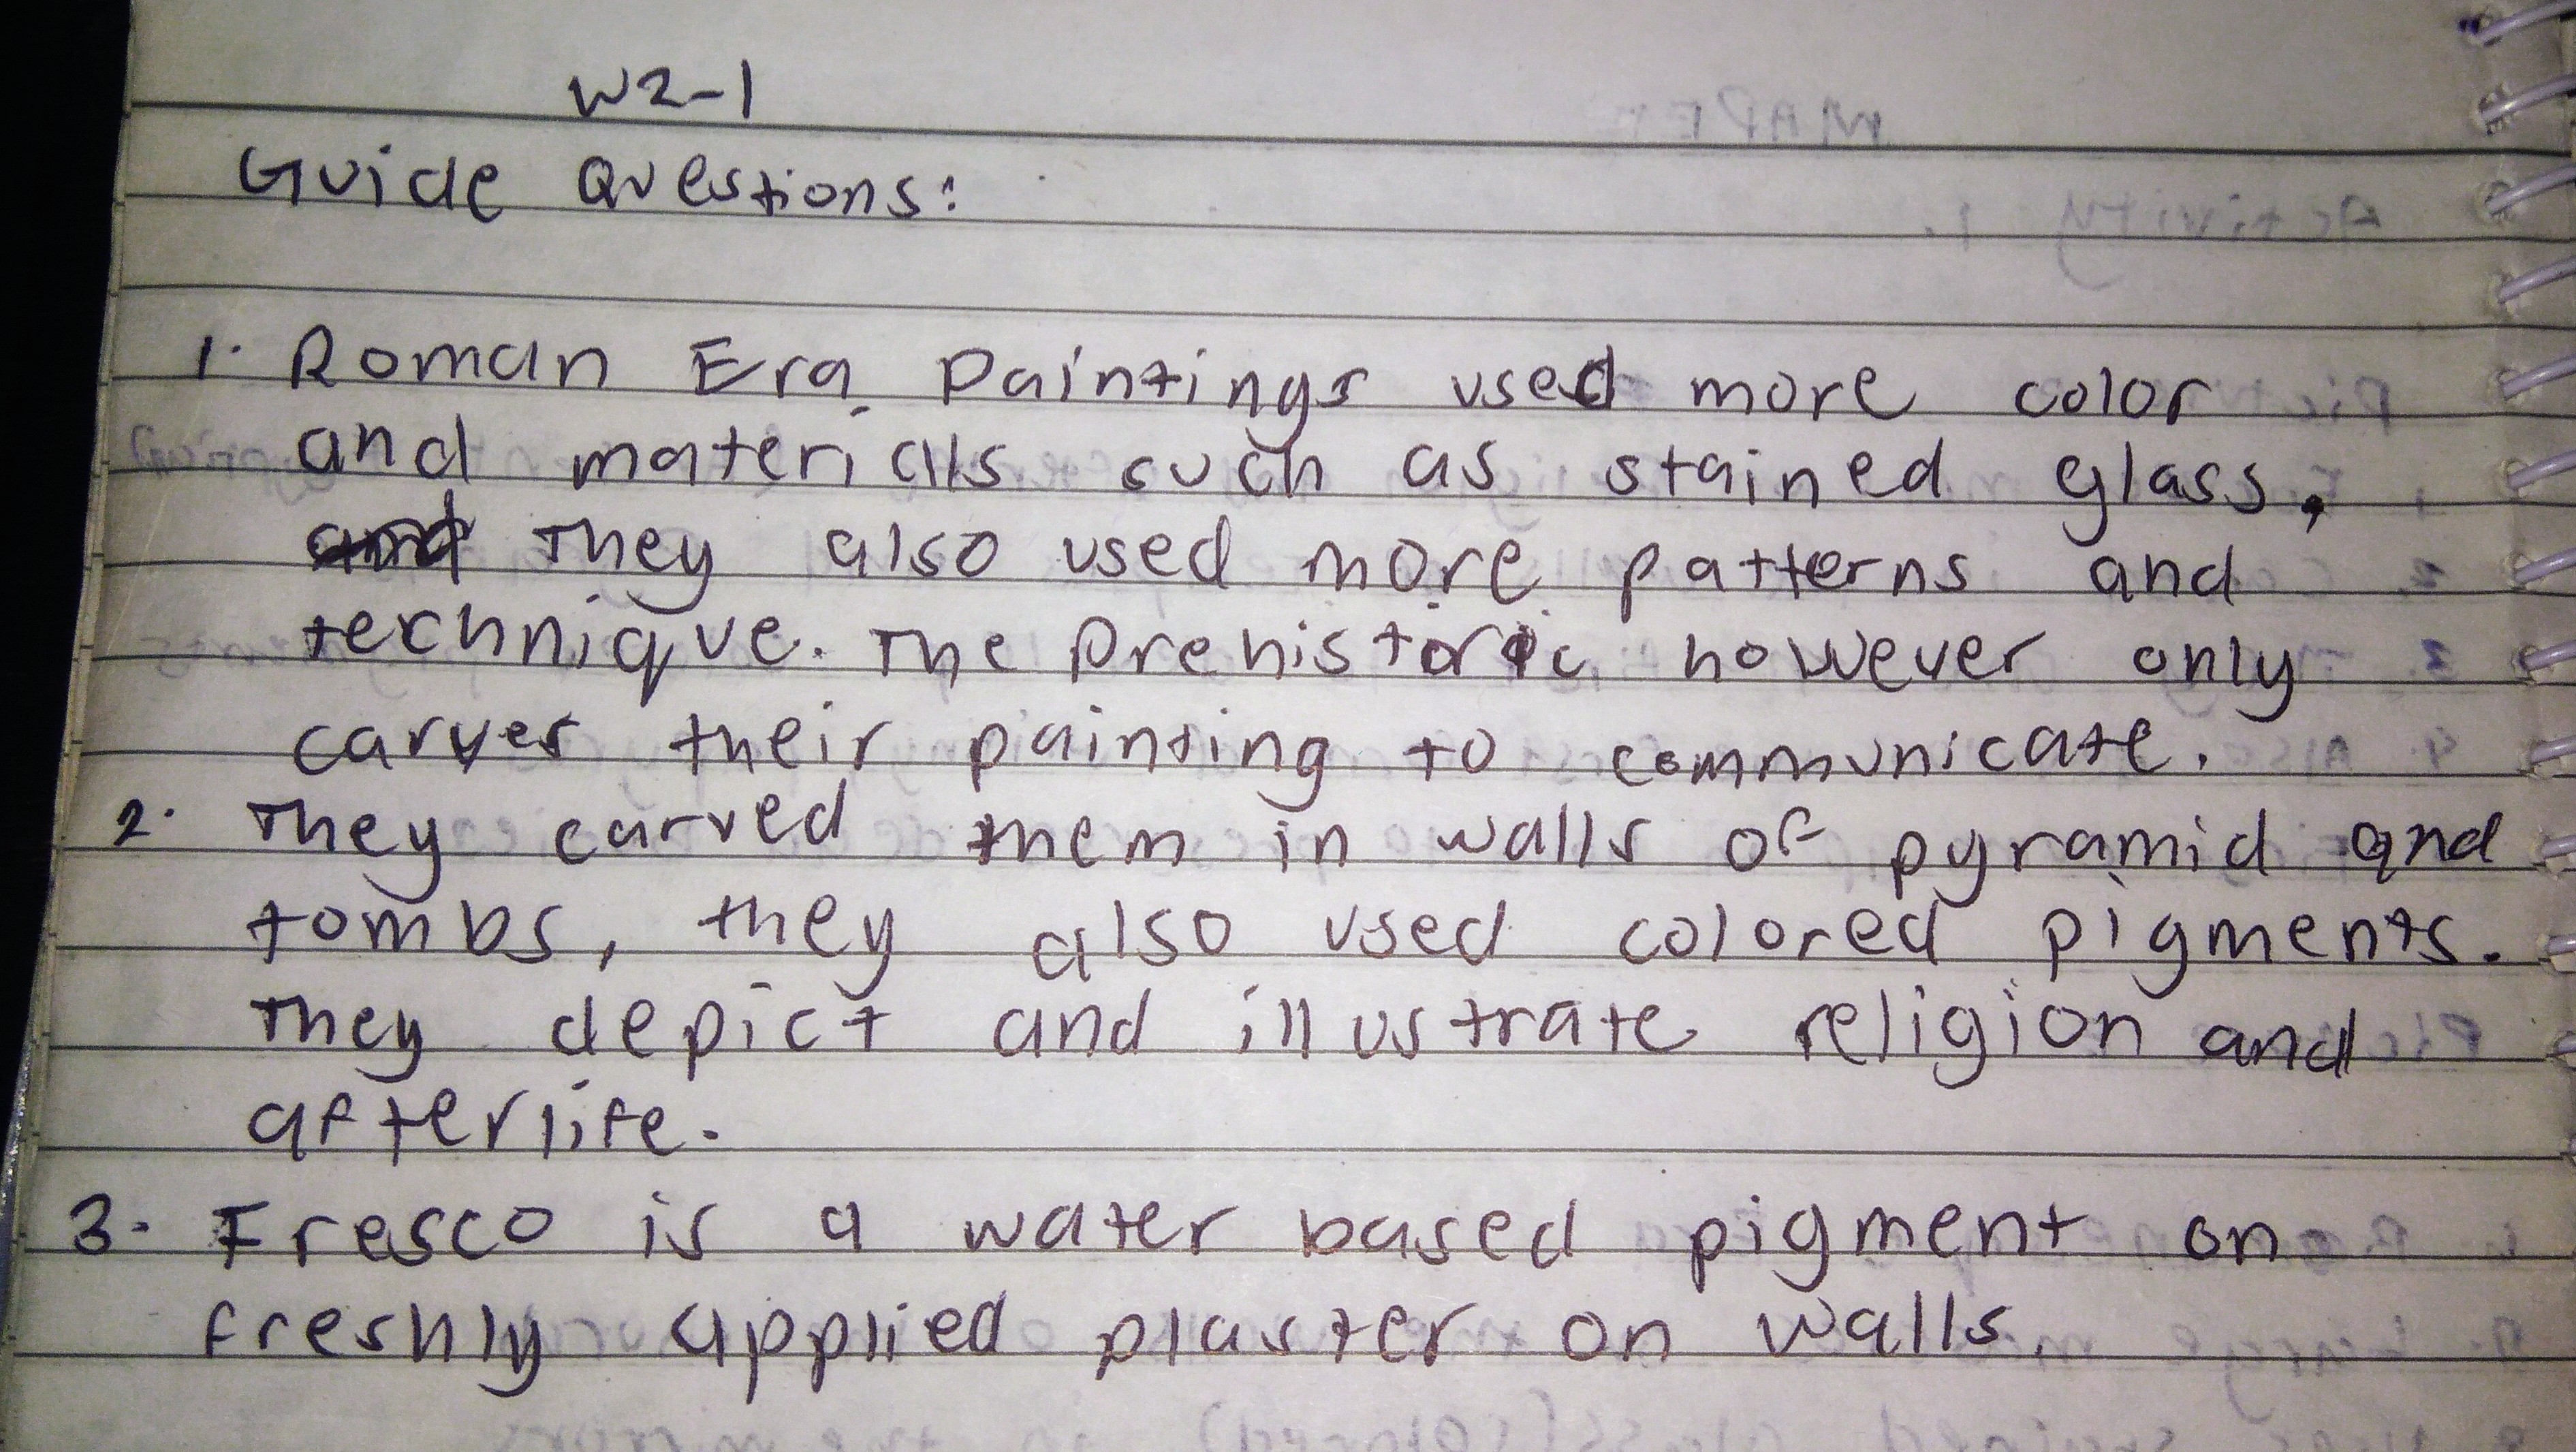 W2-1
Guide Questions:
1. Roman Era Paintings used more color
and materials such as stained glass,
They also used more patterns and
technique. The Prehistoric however only
carves their painting to communicate.
2. They carved them in walls of pyramid and
tombs, they also used colored pigments.
They depict and illustrate religion and
afterlife.
3. Fresco is a water based pigment on
freshly applied plaster on walls.